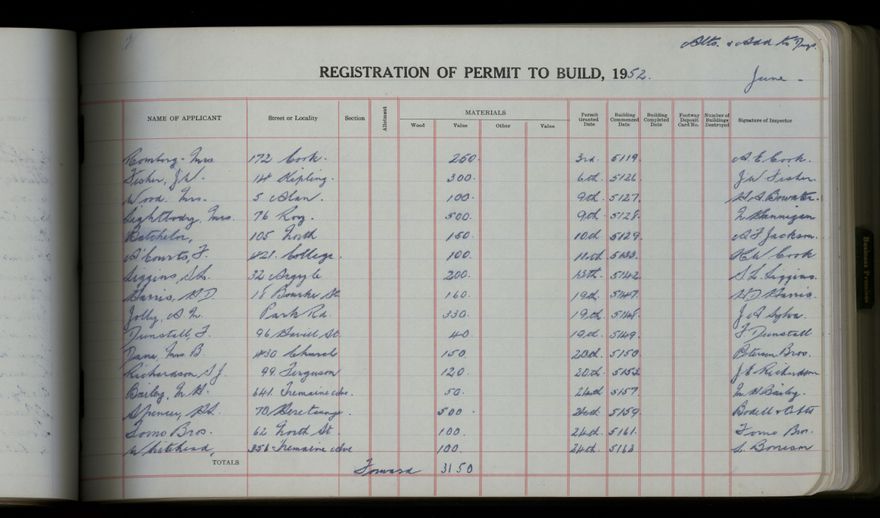 Alts. & Add to
REGISTRATION OF PERMIT TO BUILD, 1952.
June -
NAME OF APPLICANT Street or Locality Section Allotment MATERIALS Wood Value Other Value Permit Granted Date Building Commenced Date Building Completed Date Footway Deposit Card No. Number of Buildings Destroyed Signature of Inspector
Mrs 172 Cook. 250. 3rd. 5119. A E Cook.
Fisher, J W. 14 Kipling. 300. 6th. 5126. J W Fisher
Wood, Mrs. 5 Alan. 100. 9th. 5127.
Lightbody, Mrs. 76 Roy. 500. 9th. 5128. Hannigan
Batchelor, 105 North 150. 10th 5129. A F Jackson.
A'Courts, F. 421. College. 100. 11th. Cook
Siggins, S L. 32 Argyle 200. 13th. 5142. S L Siggins.
Harris, W D. 18 Bourke St. 160. 19th. 5147. W D Harris.
Jolly, A Park Rd. 330. 19th. 5148. J A
Dunstall, F. 96 St. 40. 19th. 5149. F Dunstall
Dane, Mrs B 430 Church 150 20th. 5150 Bros.
Richardson, S J. 99 Ferguson 120. 20th. 5152 Richardson
Bailey, 641. Tremaine Ave. 50. 24th. 5157. Bailey.
Spencer, 70 Beretanga. 500. 24th. 5159.
Tomo Bros. 62 North St. 100. 24th. 5161. Tomo Bros.
Whitehead, 356 Tremaine Ave 100. 24th. 5163
TOTALS Forward 3150